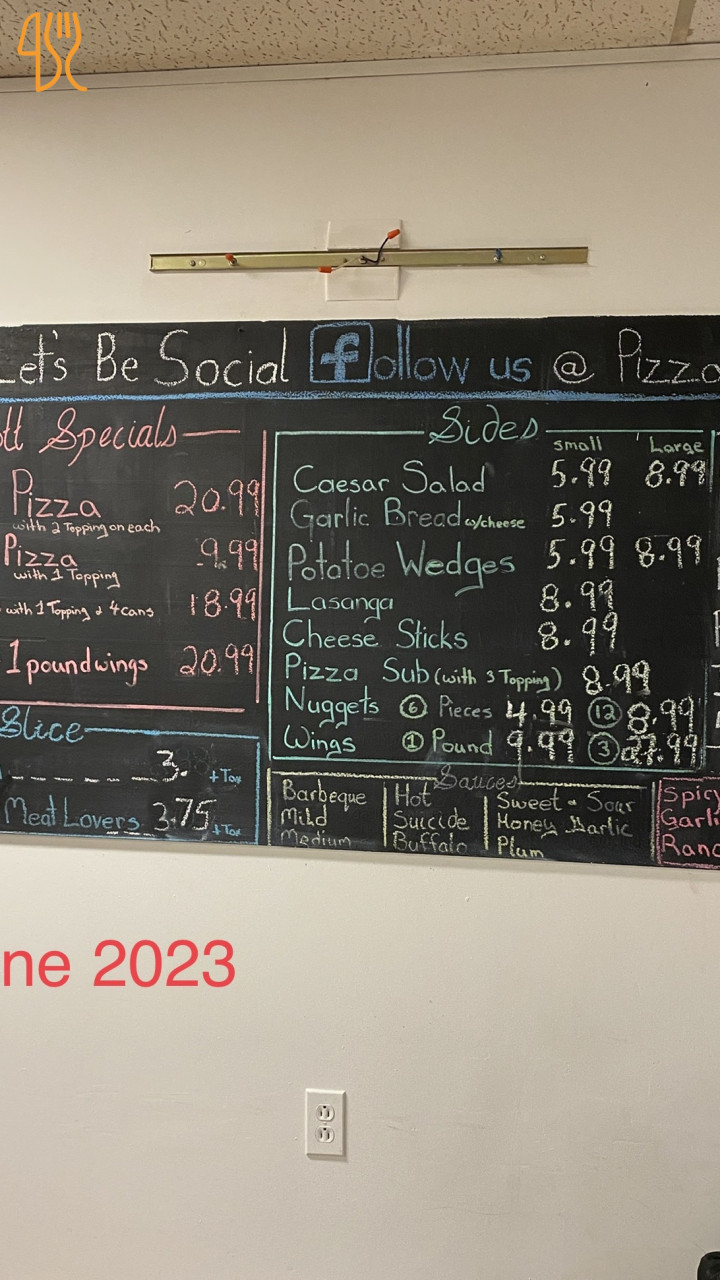 Let's Be Social follow us @ Pizza
Specials
Pizza 20.99
with 2 Topping on each
Pizza 9.99
with 1 Topping
with 1 Topping & 4 cans 18.99
1 pound wings 20.99
Slice
3. + Tax
Meat Lovers 3.75 + Tax
Sides
small Large
Caesar Salad 5.99 8.99
Garlic Bread w/cheese 5.99
Potatoe Wedges 5.99 8.99
Lasanga 8.99
Cheese Sticks 8.99
Pizza Sub (with 3 Topping) 8.99
Nuggets 6 Pieces 4.99 12 8.99
Wings 1 Pound 9.99 3 27.99
Sauces
Barbeque
Mild
Medium
Hot
Suicide
Buffalo
Sweet - Sour
Honey Garlic
Plum
Spicy
Garli
Ranc
ne 2023